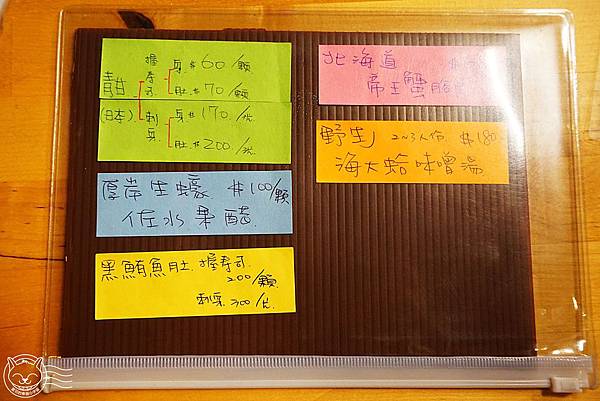 青甘(日本)
握寿司 身 $60/顆
肚 $70/顆
刺身 身 $170/份
肚 $200/份
厚岸生蠔 $100/顆
佐水果醋
黑鮪魚肚 握寿司
200/顆
刺身 300/份
北海道
帝王蟹
野生 2~3人份 $180
海大蛤味噌湯